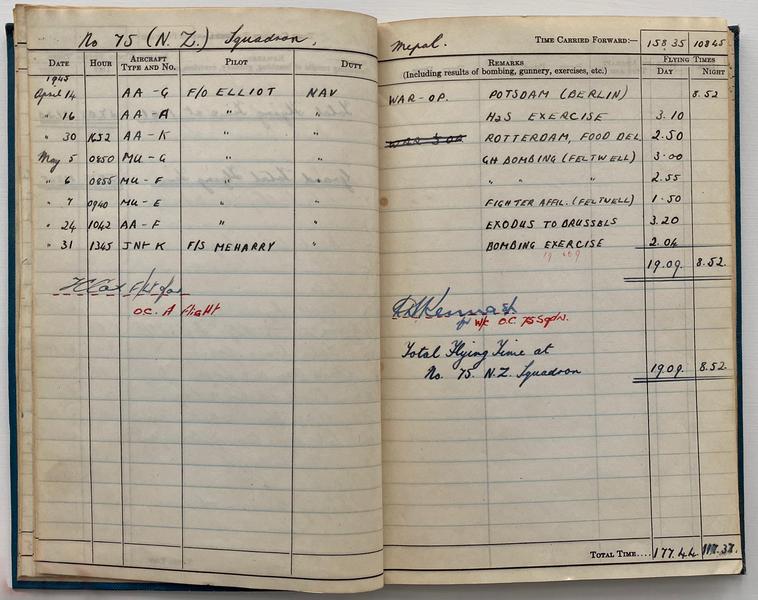 No 75 (N.Z.) Squadron.
DATE HOUR AIRCRAFT TYPE AND NO. PILOT DUTY
1945
April 14 AA - G F/O ELLIOT NAV
" 16 AA - A " "
" 30 1652 AA - K " "
May 5 0850 MU - G " "
" 6 0855 MU - F " "
" 7 0940 MU - E " "
" 24 1042 AA - F " "
" 31 1345 JN4 K F/S MEHARRY "
O.C. A Flight
Mepal. TIME CARRIED FORWARD:— 158.35 108 45
REMARKS
(Including results of bombing, gunnery, exercises, etc.)
FLYING TIMES
DAY NIGHT
WAR - OP. POTSDAM (BERLIN) 8.52
H2S EXERCISE 3.10
ROTTERDAM, FOOD DEL 2.50
GH BOMBING (FELTWELL) 3.00
" " " 2.55
FIGHTER AFFIL. (FELTWELL) 1.50
EXODUS TO BRUSSELS 3.20
BOMBING EXERCISE 2.04
19.09. 8.52.
for W/C O.C. 75 Sqdn.
Total Flying Time at
No. 75. N.Z. Squadron 19.09. 8.52.
TOTAL TIME.... 177.44 117.37.